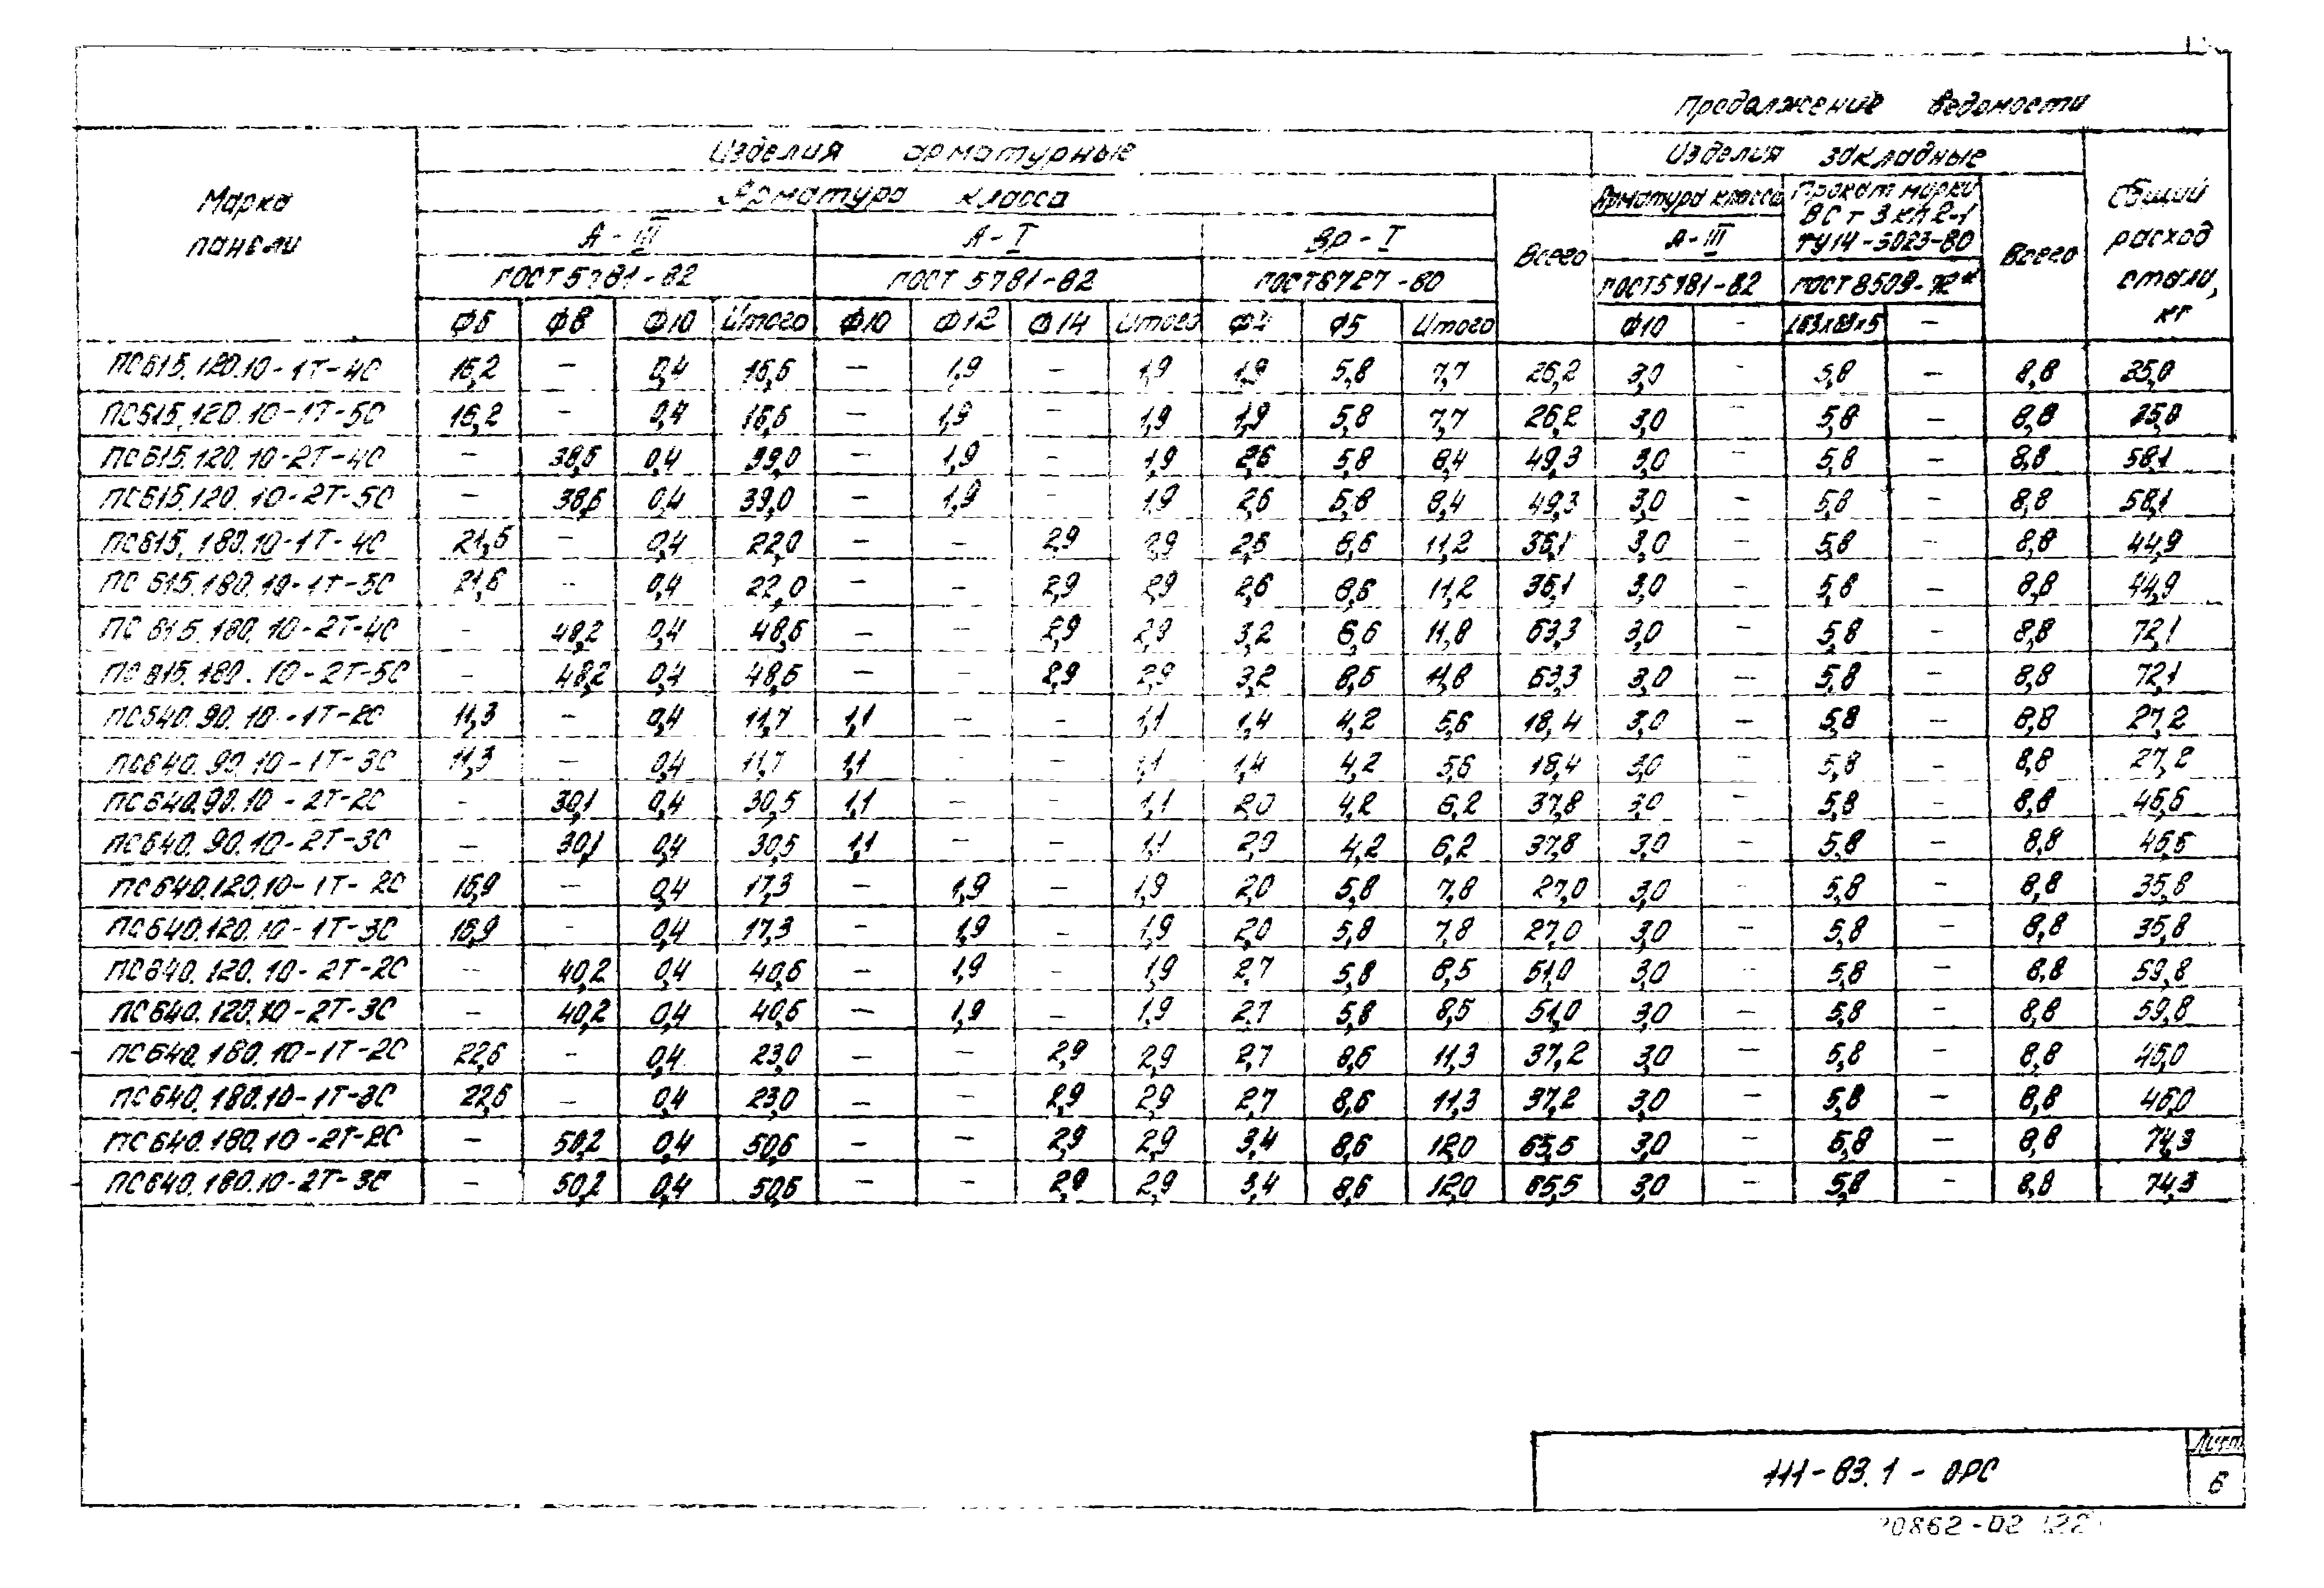 Продолжение ведомости
Марка панели
Изделия арматурные
Изделия закладные
Общий расход стали, кг
Арматура класса
Всего
Арматура класса
Прокат марки ВСт3кп2-1 ТУ14-3023-80
Всего
А-III
А-I
Вр-I
А-III
ГОСТ 5781-82
ГОСТ 5781-82
ГОСТ 6727-80
ГОСТ 5781-82
ГОСТ 8509-72*
Ф6 Ф8 Ф10 Итого Ф10 Ф12 Ф14 Итого Ф4 Ф5 Итого Ф10 - L63x63x5 -
ПС615.120.10-1Т-4С 16,2 - 0,4 16,6 - 1,9 - 1,9 1,9 5,8 7,7 26,2 3,0 - 5,8 - 8,8 35,0
ПС615.120.10-1Т-5С 16,2 - 0,4 16,6 - 1,9 - 1,9 1,9 5,8 7,7 26,2 3,0 - 5,8 - 8,8 35,0
ПС615.120.10-2Т-4С - 38,6 0,4 39,0 - 1,9 - 1,9 2,6 5,8 8,4 49,3 3,0 - 5,8 - 8,8 58,1
ПС615.120.10-2Т-5С - 38,6 0,4 39,0 - 1,9 - 1,9 2,6 5,8 8,4 49,3 3,0 - 5,8 - 8,8 58,1
ПС615.180.10-1Т-4С 21,6 - 0,4 22,0 - - 2,9 2,9 2,6 8,6 11,2 36,1 3,0 - 5,8 - 8,8 44,9
ПС615.180.10-1Т-5С 21,6 - 0,4 22,0 - - 2,9 2,9 2,6 8,6 11,2 36,1 3,0 - 5,8 - 8,8 44,9
ПС615.180.10-2Т-4С - 48,2 0,4 48,6 - - 2,9 2,9 3,2 8,6 11,8 63,3 3,0 - 5,8 - 8,8 72,1
ПС615.180.10-2Т-5С - 48,2 0,4 48,6 - - 2,9 2,9 3,2 8,6 11,8 63,3 3,0 - 5,8 - 8,8 72,1
ПС640.90.10-1Т-2С 11,3 - 0,4 11,7 1,1 - - 1,1 1,4 4,2 5,6 18,4 3,0 - 5,8 - 8,8 27,2
ПС640.90.10-1Т-3С 11,3 - 0,4 11,7 1,1 - - 1,1 1,4 4,2 5,6 18,4 3,0 - 5,8 - 8,8 27,2
ПС640.90.10-2Т-2С - 30,1 0,4 30,5 1,1 - - 1,1 2,0 4,2 6,2 37,8 3,0 - 5,8 - 8,8 46,6
ПС640.90.10-2Т-3С - 30,1 0,4 30,5 1,1 - - 1,1 2,0 4,2 6,2 37,8 3,0 - 5,8 - 8,8 46,6
ПС640.120.10-1Т-2С 16,9 - 0,4 17,3 - 1,9 - 1,9 2,0 5,8 7,8 27,0 3,0 - 5,8 - 8,8 35,8
ПС640.120.10-1Т-3С 16,9 - 0,4 17,3 - 1,9 - 1,9 2,0 5,8 7,8 27,0 3,0 - 5,8 - 8,8 35,8
ПС640.120.10-2Т-2С - 40,2 0,4 40,6 - 1,9 - 1,9 2,7 5,8 8,5 51,0 3,0 - 5,8 - 8,8 59,8
ПС640.120.10-2Т-3С - 40,2 0,4 40,6 - 1,9 - 1,9 2,7 5,8 8,5 51,0 3,0 - 5,8 - 8,8 59,8
ПС640.180.10-1Т-2С 22,6 - 0,4 23,0 - - 2,9 2,9 2,7 8,6 11,3 37,2 3,0 - 5,8 - 8,8 46,0
ПС640.180.10-1Т-3С 22,6 - 0,4 23,0 - - 2,9 2,9 2,7 8,6 11,3 37,2 3,0 - 5,8 - 8,8 46,0
ПС640.180.10-2Т-2С - 50,2 0,4 50,6 - - 2,9 2,9 3,4 8,6 12,0 65,5 3,0 - 5,8 - 8,8 74,3
ПС640.180.10-2Т-3С - 50,2 0,4 50,6 - - 2,9 2,9 3,4 8,6 12,0 65,5 3,0 - 5,8 - 8,8 74,3
111-83.1-ОРС
Лист
6
20862-02 22